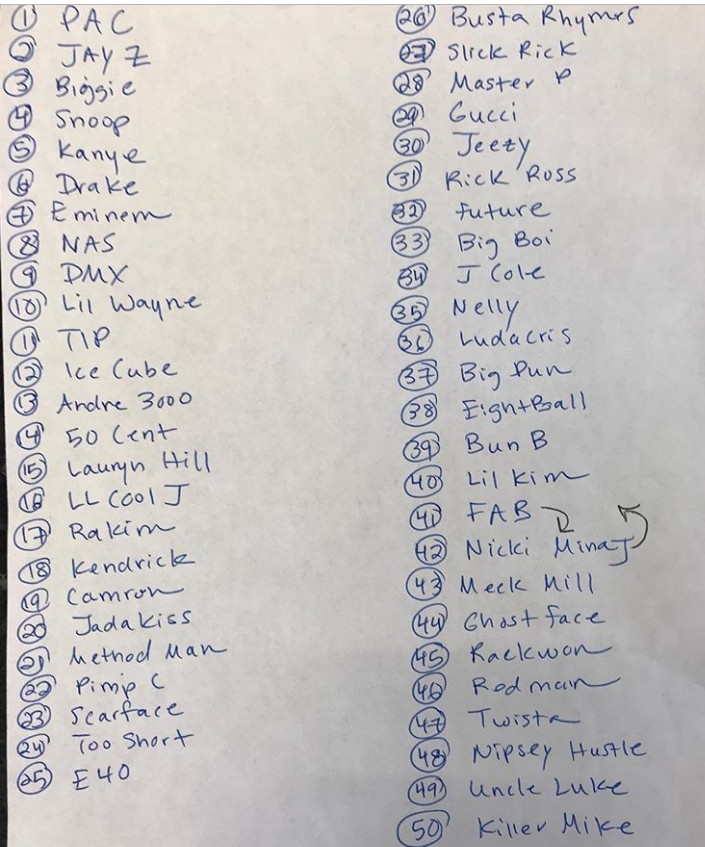 1 PAC
2 JAY Z
3 Biggie
4 Snoop
5 Kanye
6 Drake
7 Eminem
8 NAS
9 DMX
10 Lil Wayne
11 TIP
12 Ice Cube
13 Andre 3000
14 50 Cent
15 Lauryn Hill
16 LL Cool J
17 Rakim
18 Kendrick
19 Camron
20 Jadakiss
21 Method Man
22 Pimp C
23 Scarface
24 Too Short
25 E40
26 Busta Rhymes
27 Slick Rick
28 Master P
29 Gucci
30 Jeezy
31 Rick Ross
32 Future
33 Big Boi
34 J Cole
35 Nelly
36 Ludacris
37 Big Pun
38 EightBall
39 Bun B
40 Lil Kim
41 FAB
42 Nicki Minaj
43 Meek Mill
44 Ghost face
45 Raekwon
46 Redman
47 Twista
48 Nipsey Hustle
49 Uncle Luke
50 Killer Mike